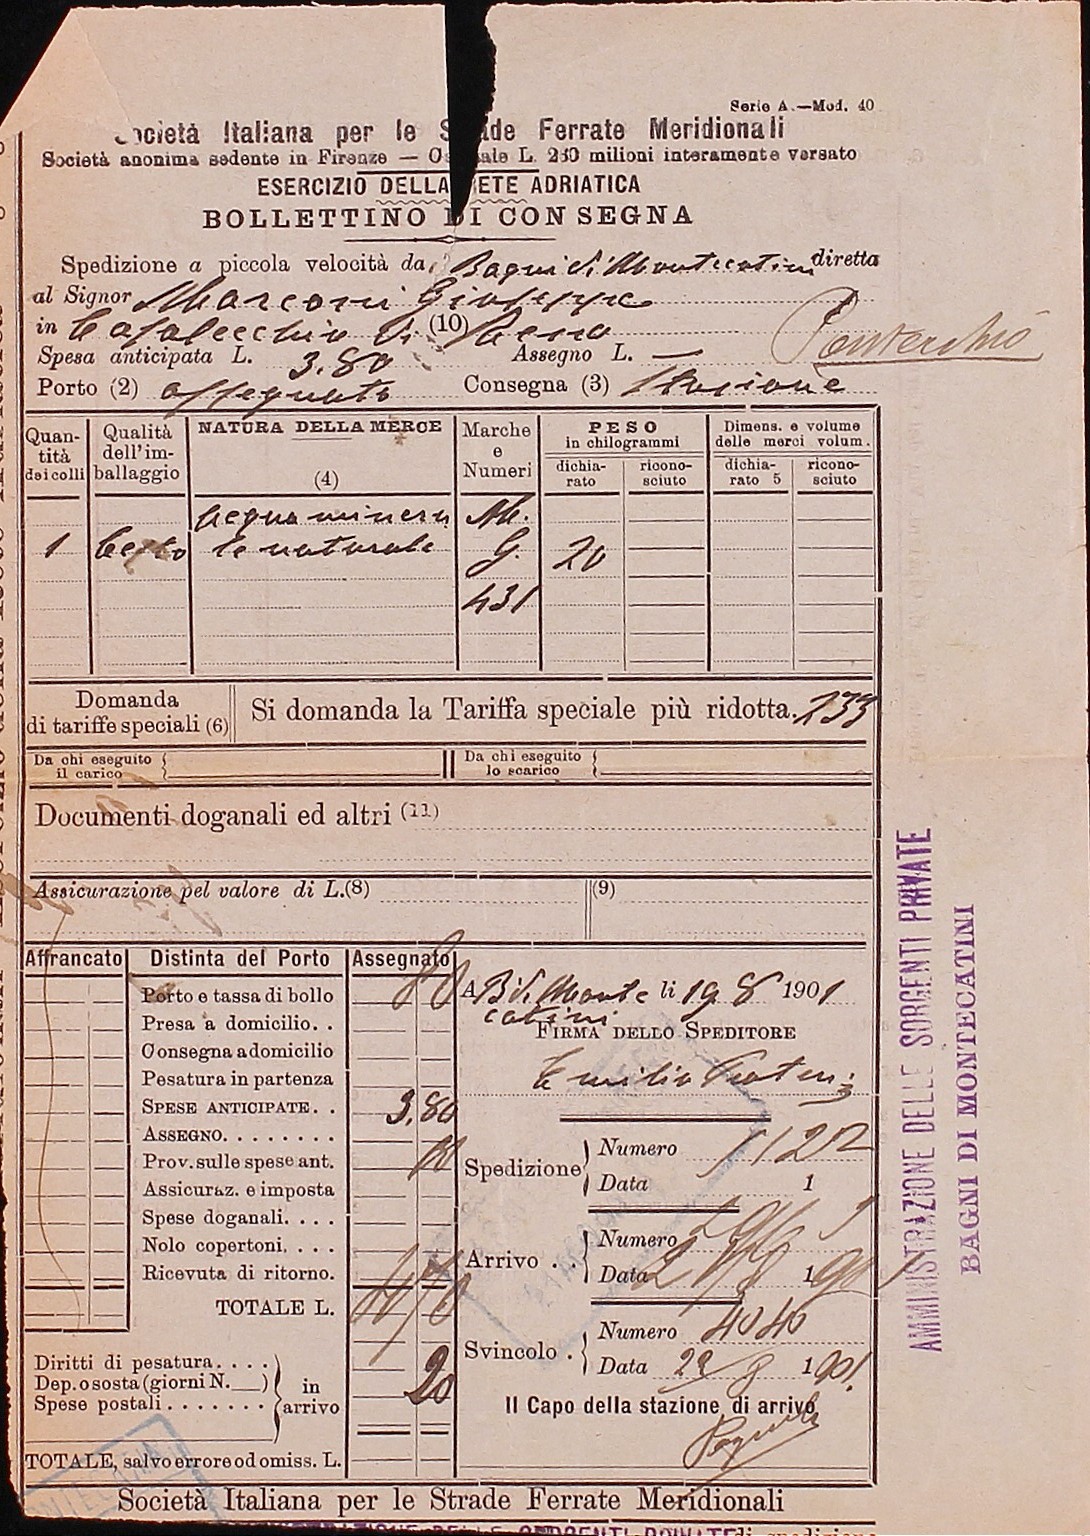 Serie A.—Mod. 40
Società Italiana per le Strade Ferrate Meridionali
Società anonima sedente in Firenze — L. 260 milioni interamente versato
ESERCIZIO DELLA RETE ADRIATICA
BOLLETTINO DI CONSEGNA
Spedizione a piccola velocità da Bagni di Montecatini diretta
al Signor Marconi Giuseppe
in Casalecchio di (10) Reno
Pontecchio
Spesa anticipata L. 3.80 Assegno L. —
Porto (2) assegnato Consegna (3) Stazione
Quantità dei colli
Qualità dell'imballaggio
NATURA DELLA MERCE
(4)
Marche e Numeri
PESO in chilogrammi
dichiarato
riconosciuto
Dimens. e volume delle merci volum.
dichiarato 5
riconosciuto
Acqua minera M.
1 Cesto le naturale G. 20
431
Domanda di tariffe speciali (6)
Si domanda la Tariffa speciale più ridotta. 233
Da chi eseguito il carico
Da chi eseguito lo scarico
Documenti doganali ed altri (11)
Assicurazione pel valore di L.(8)
(9)
Affrancato Distinta del Porto Assegnato
Porto e tassa di bollo 80
Presa a domicilio. .
Consegna a domicilio
Pesatura in partenza
SPESE ANTICIPATE. . 3.80
ASSEGNO. . . . . . . .
Prov. sulle spese ant. 10
Assicuraz. e imposta
Spese doganali. . . .
Nolo copertoni. . . .
Ricevuta di ritorno.
TOTALE L. 4 70
Diritti di pesatura. . . .
Dep. o sosta (giorni N.__)
Spese postali . . . . . . .
in arrivo
20
TOTALE, salvo errore od omiss. L.
A B. di Montecatini li 19 8 1901
FIRMA DELLO SPEDITORE
Emilio
Spedizione Numero 1122
Data 1
Arrivo . . Numero
Data 1901
Svincolo . Numero 4040
Data 1901.
Il Capo della stazione di arrivo
Società Italiana per le Strade Ferrate Meridionali
AMMINISTRAZIONE DELLE SORGENTI PRIVATE
BAGNI DI MONTECATINI